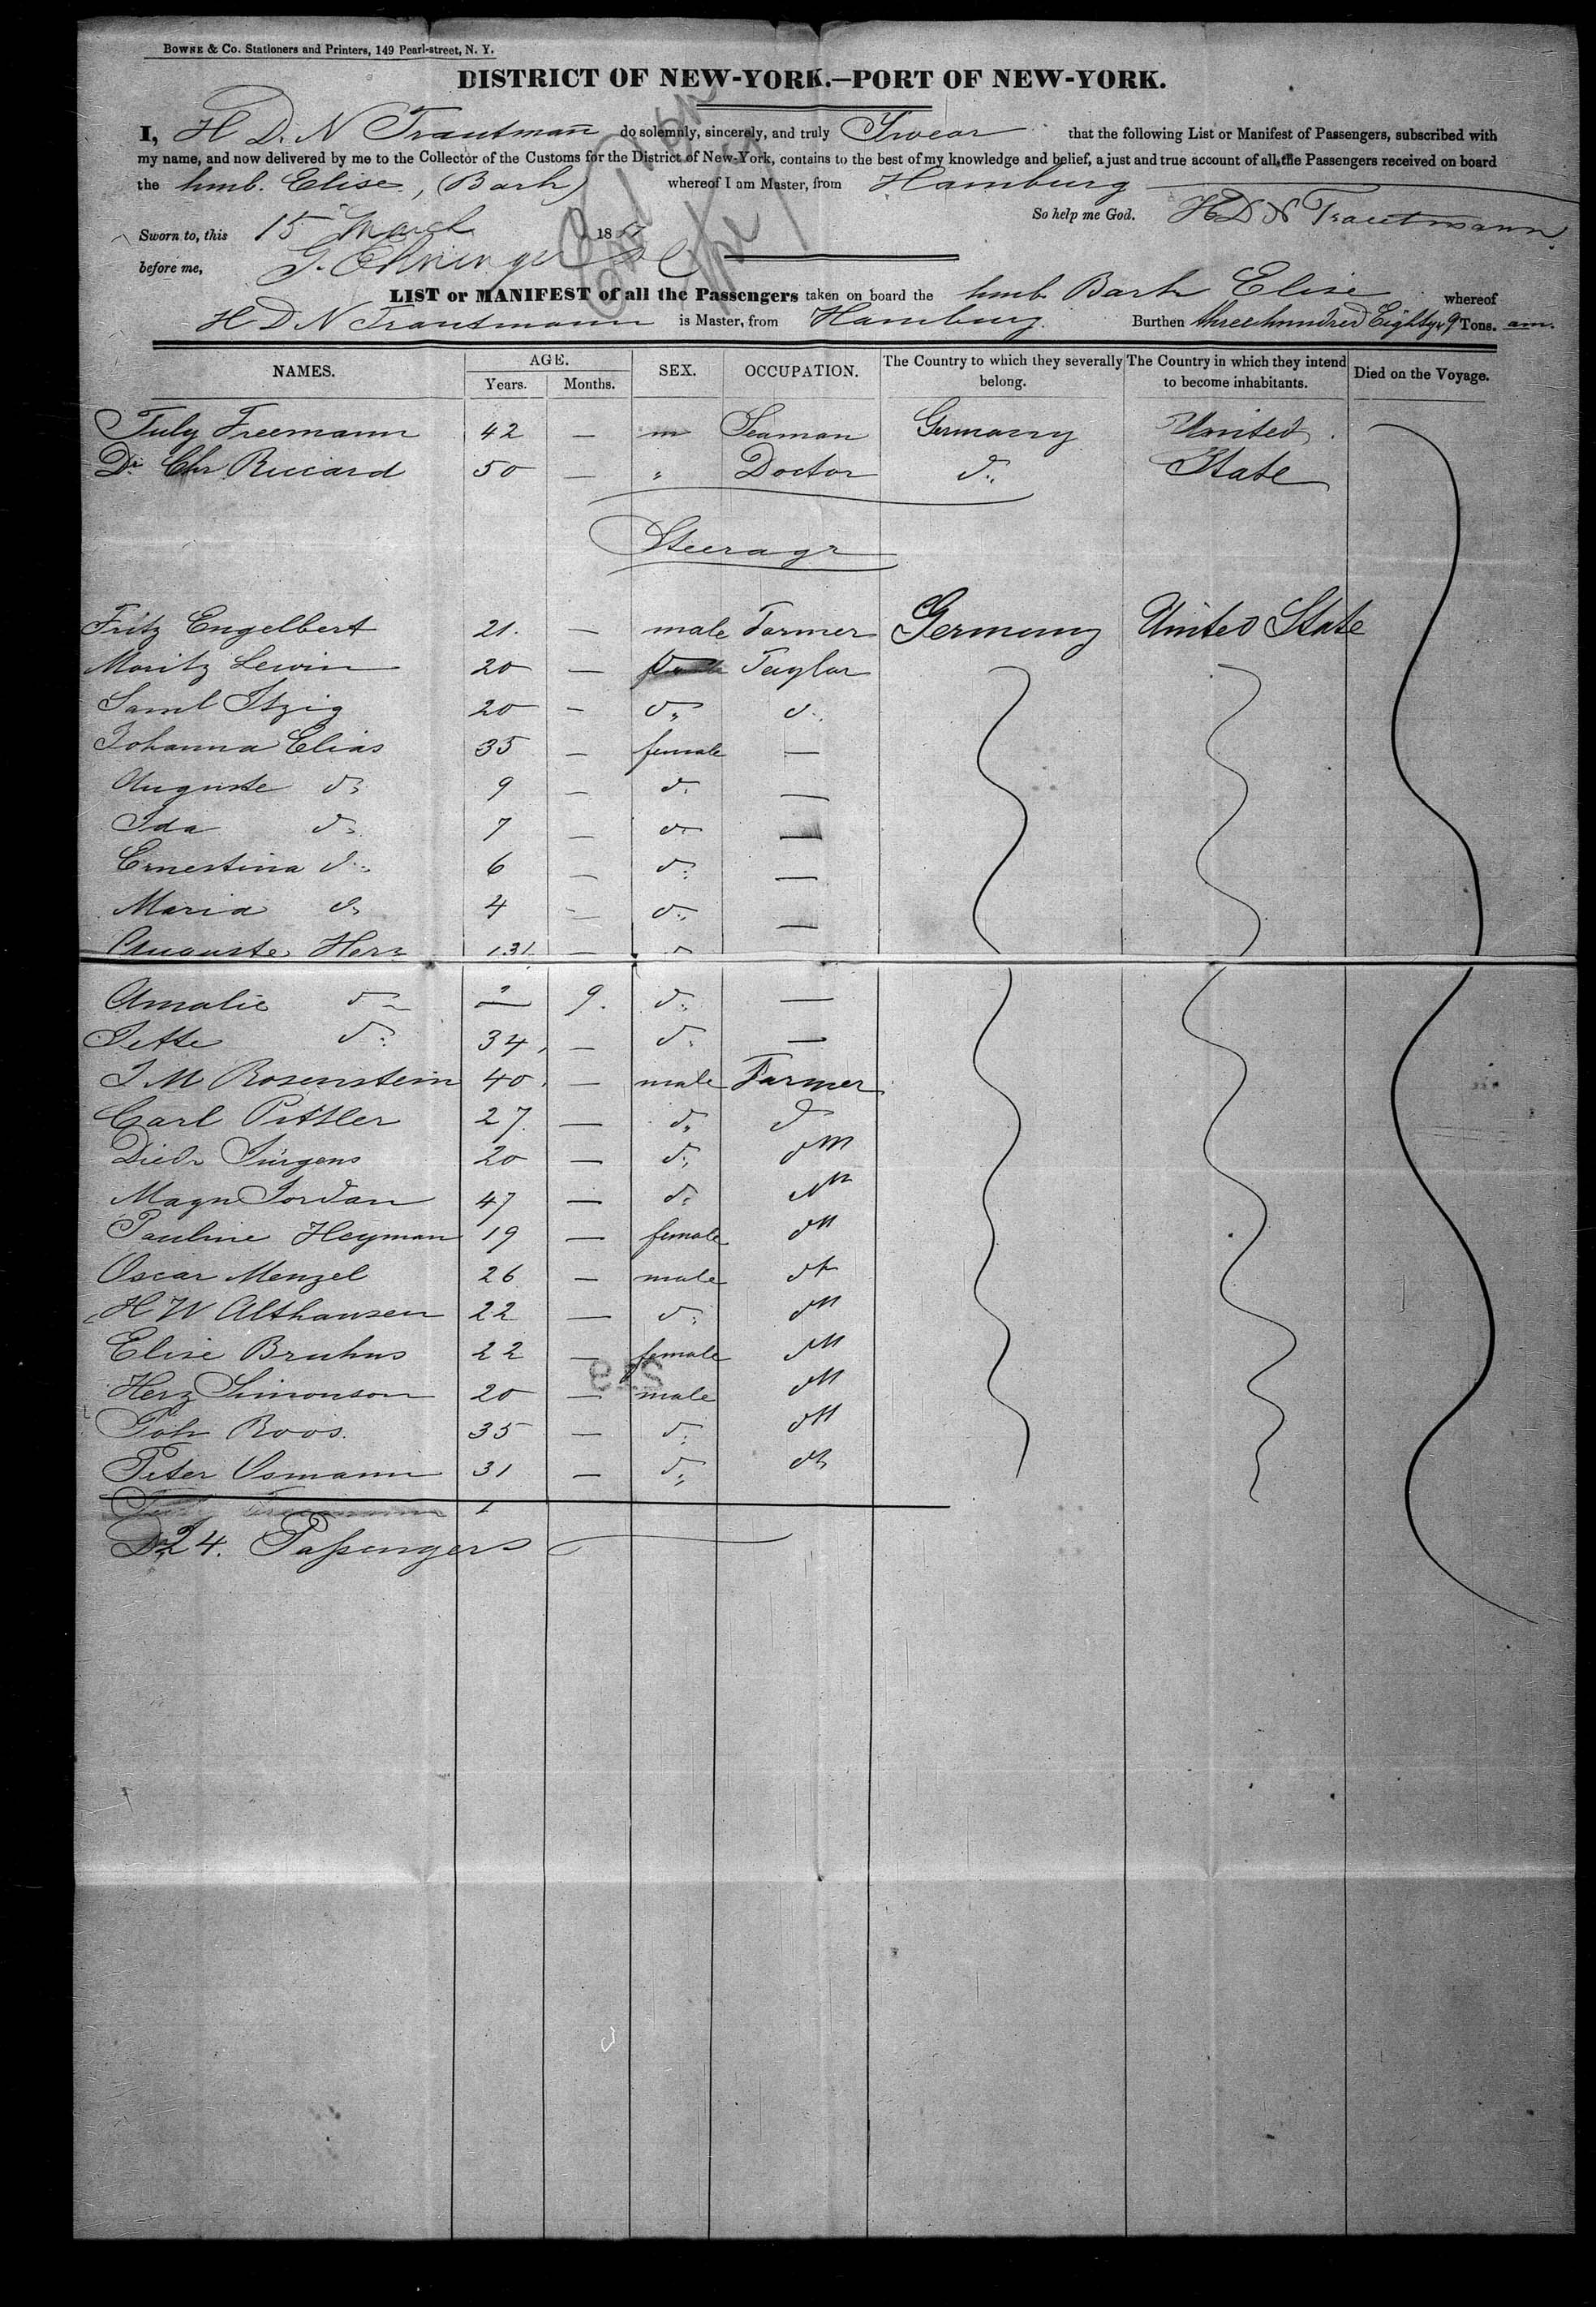 BOWNE & CO. Stationers and Printers, 149 Pearl-street, N. Y.
DISTRICT OF NEW-YORK.—PORT OF NEW-YORK.
I, H D. N Trautmañ do solemnly, sincerely, and truly Swear that the following List or Manifest of Passengers, subscribed with
my name, and now delivered by me to the Collector of the Customs for the District of New-York, contains to the best of my knowledge and belief, a just and true account of all the Passengers received on board
the hmb. Elise, (Bark) whereof I am Master, from Hamburg
So help me God. H D N Trautmann.
Sworn to, this 15 March 18
before me,
LIST or MANIFEST of all the Passengers taken on board the hmb Bark Elise whereof
H D N Trautmann is Master, from Hamburg. Burthen threehundred Eighty 9 Tons. am.
NAMES. AGE. SEX. OCCUPATION. The Country to which they severally belong. The Country in which they intend to become inhabitants. Died on the Voyage.
Years. Months.
July Freemann 42 — m Seaman Germany United
Dr Chr Ruccard 50 — " Doctor do. State
Steerage
Fritz Engelbert 21. — male Farmer Germany United State
Moritz Lewin 20 — Taylor
Saml Itzig 20 — do. do.
Johanna Elias 35 — female —
Auguste do 9 — do. —
Ida do 7 — do —
Ernestina do 6 — do. —
Maria do 4 — do. —
Auguste Herz — do
Amalie do — 9. do. —
Jette do. 34 — do. —
J M Rosenstein 40 — male Farmer
Carl Pittler 27. — do. do
Diedr Jürgens 20 — do.
Magn Jordan 47 — do.
Pauline Heyman 19 — female
Oscar Menzel 26 — male
H W Althausen 22 — do.
Elise Bruhns 22 — female
Herz Simonson 20 — male
Joh Roos. 35 — do.
Peter Osmann 31 — do.
24. Passengers